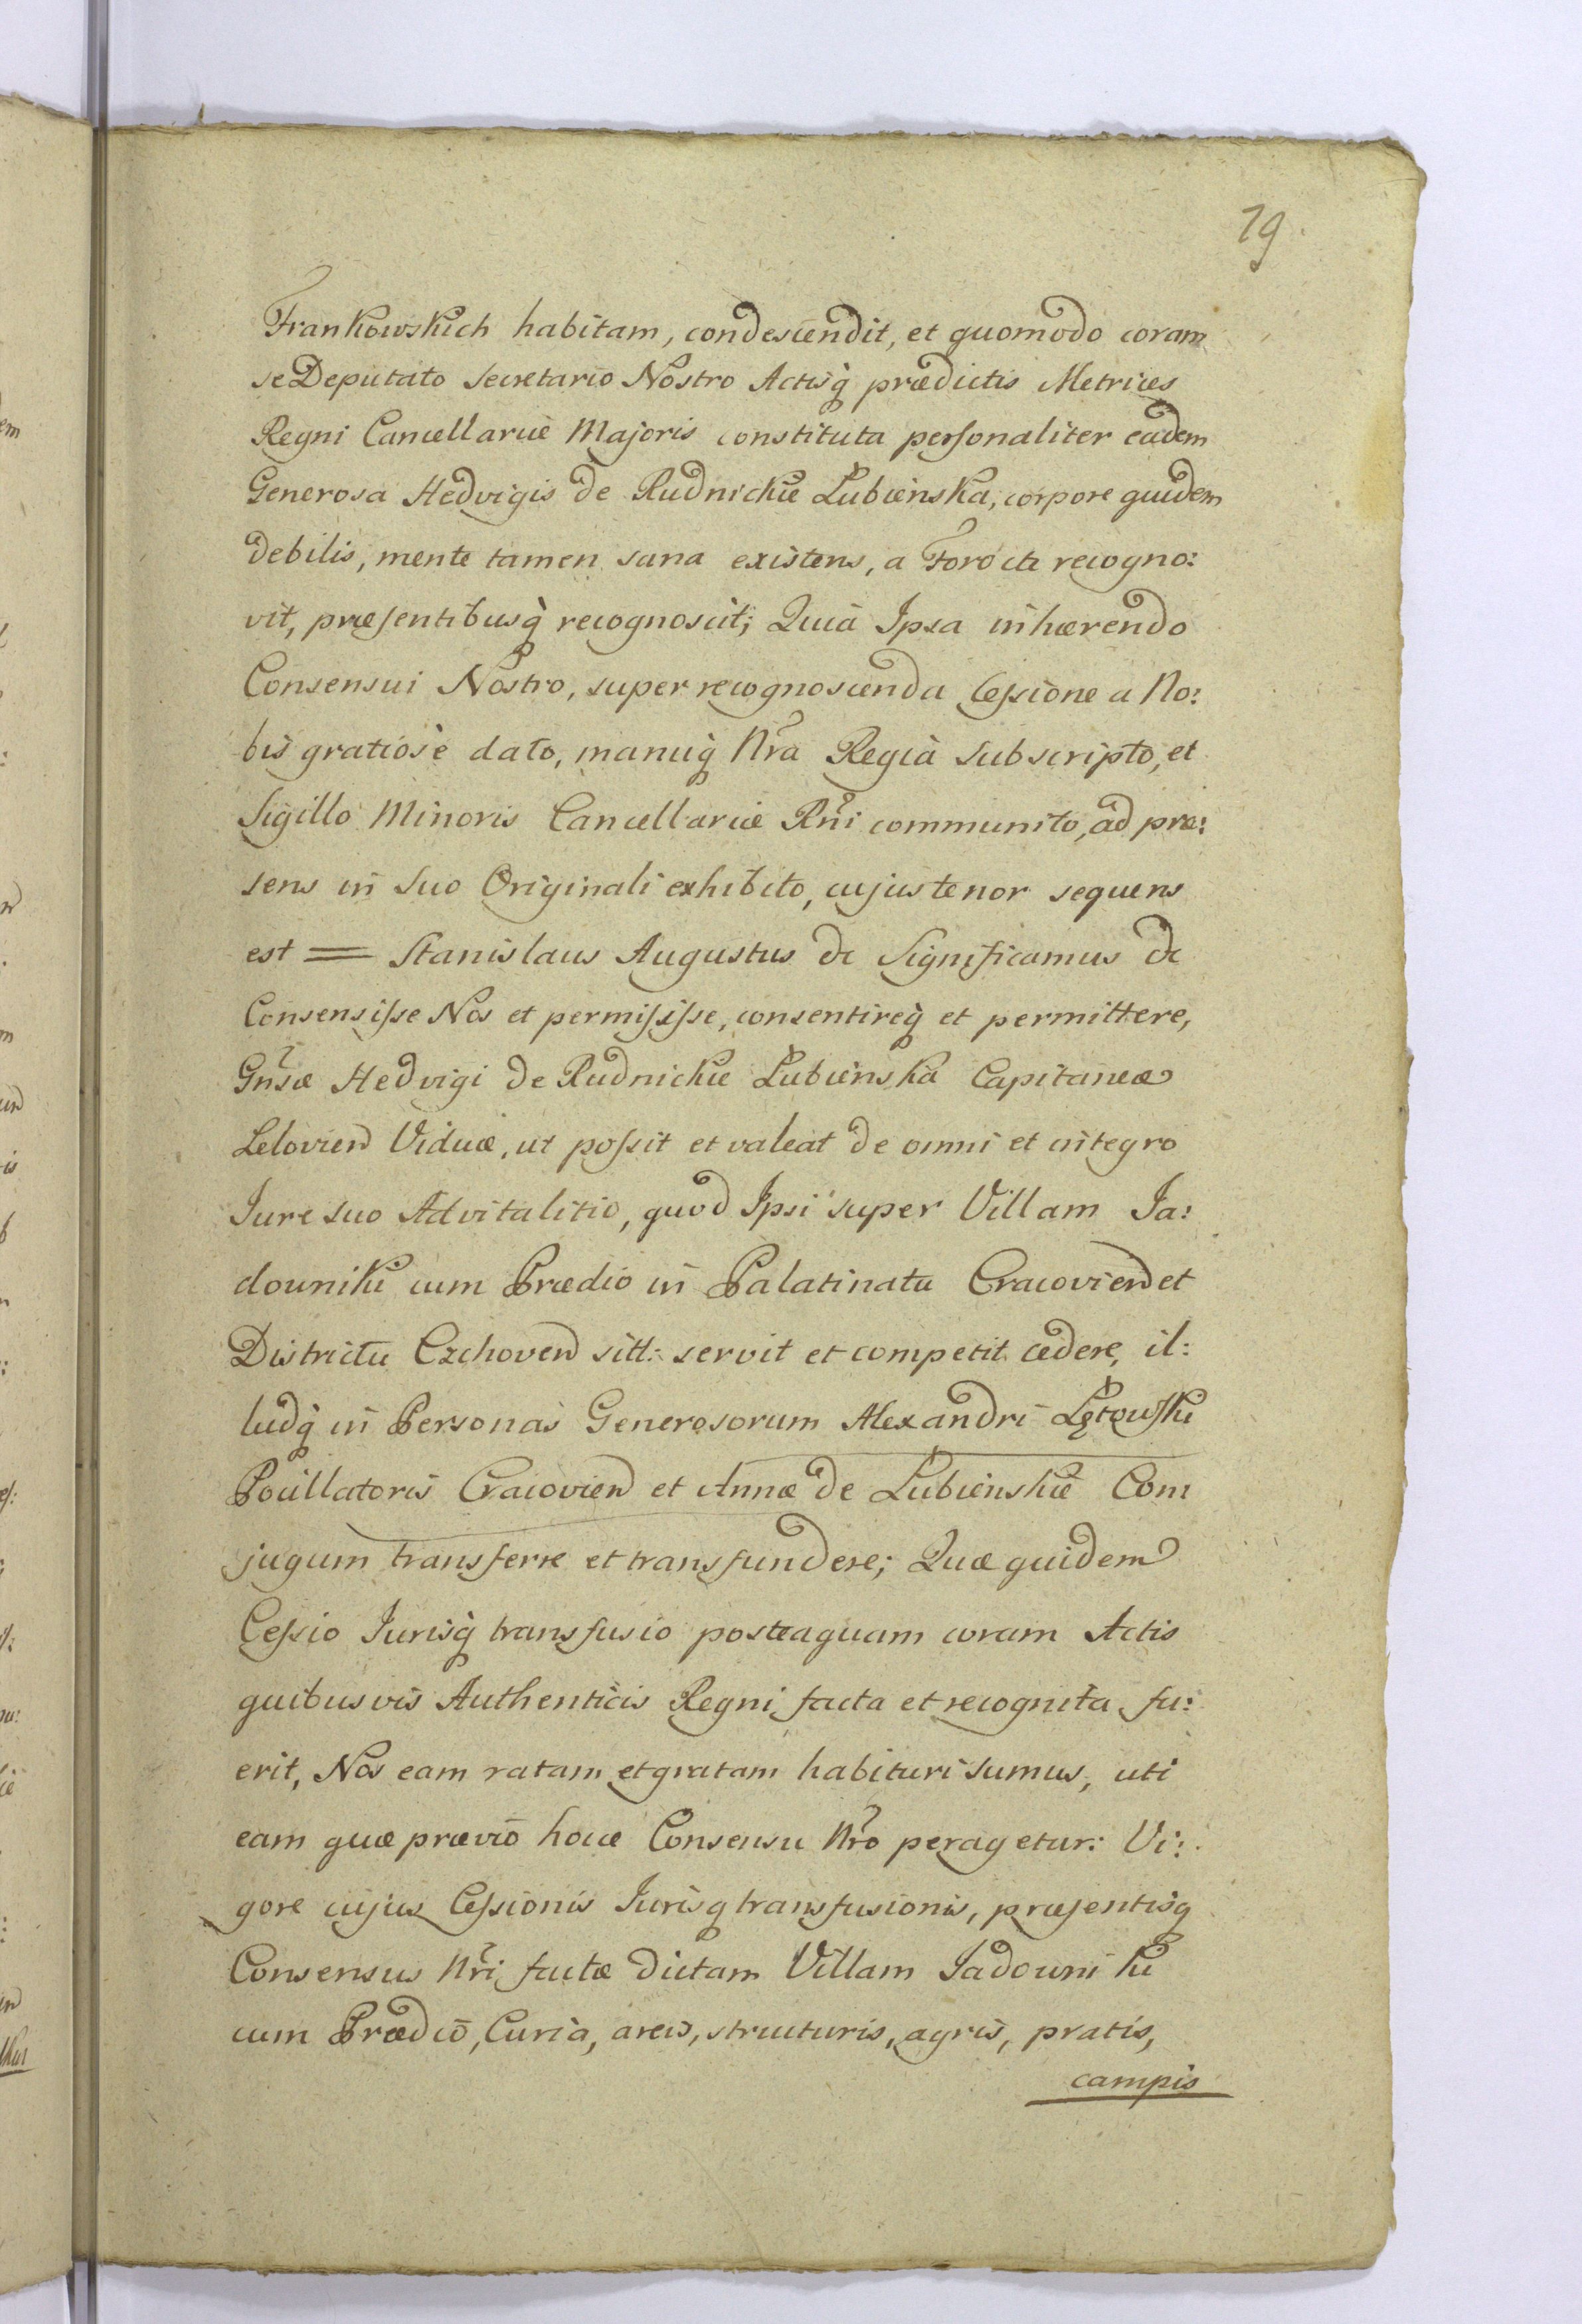 79.
Frankowskich habitam, condescendit, et quomodo coram
se Deputato Secretario Nostro Actisq̀ prædictis Metrices
Regni Cancellariæ Majoris constituta perſonaliter eadem
Generosa Hedvigis de Rudnickie Łubienska, corpore quidem
debilis, mente tamen sana existens, a Foro etc recogno:
vit, præſentibusq̀ recognoscit; Quia Ipsa inhærendo
Consensui Nostro, super recognoscenda Ceſsione a No:
bis gratiosè dato, manuq̀ Nrã Regià Subscripto, et
Sigillo Minoris Cancellariæ Rñi communito, ad præ:
sens in Suo Originali exhibito, cujus tenor sequens
est = Stanislaus Augustus etc Significamus etc
Consensiſse Nos et permiſsiſse, consentireq̀ et permittere,
Gñsæ Hedvigi de Rudnickie Łubienska Capitaneæ
Lelovien Viduæ, ut poſsit et valeat de omni et integro
Jure suo Advitalitio, quod Ipsi super Villam Ja:
douniki cum Prædio in Palatinatu Cracovien et
Districtu Czchoven sitt: servit et competit cedere, il:
ludq̀ in Personas Generosorum Alexandri Łętowſki
Pocillatoris Cracovien et Annæ de Łubienskie Con
jugum transferre et transfundere; Quæ quidem
Ceſsio Jurisq̀ transfusio posteaquam coram Actis
quibusvis Authenticis Regni facta et recognita fu:
erit, Nos eam ratam et gratam habituri sumus, uti
eam quæ prævio hocce Consensu Nr̃o peragetur: Vi:
gore cujus Ceſsionis Jurisq transfusionis, præſentisq
Consensus Nr̃i factæ dictam Villam Jadouniki
cum Prædio, Curia, areis, structuris, agris, pratis,
campis